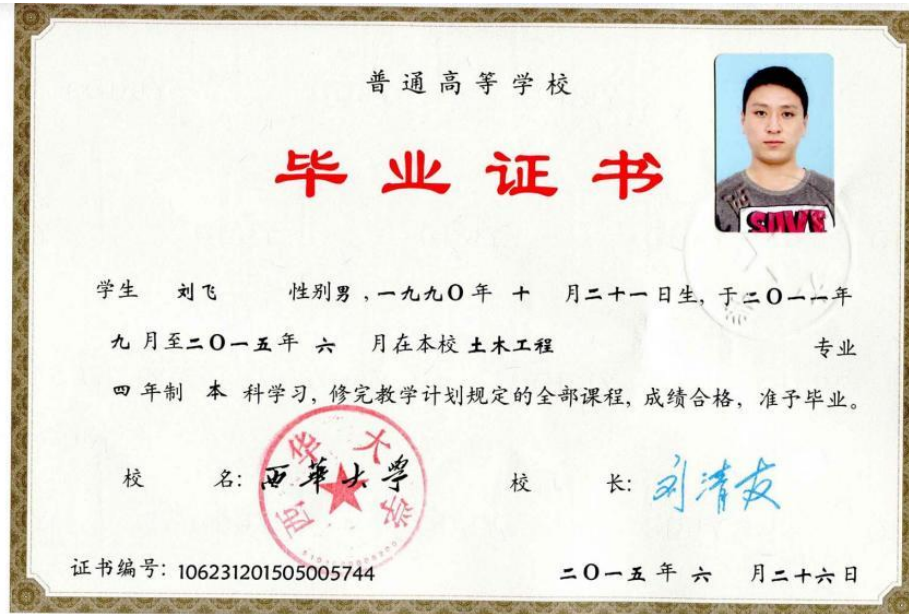 普通高等学校
毕业证书
学生 刘飞 性别男，一九九〇年 十 月二十一日生，于二〇一一年
九 月至二〇一五年 六 月在本校 土木工程 专业
四 年制 本 科学习，修完教学计划规定的全部课程，成绩合格，准予毕业。
校 名：西華大學 校 长：刘清友
西华大学
证书编号：106231201505005744 二〇一五年 六 月二十六日